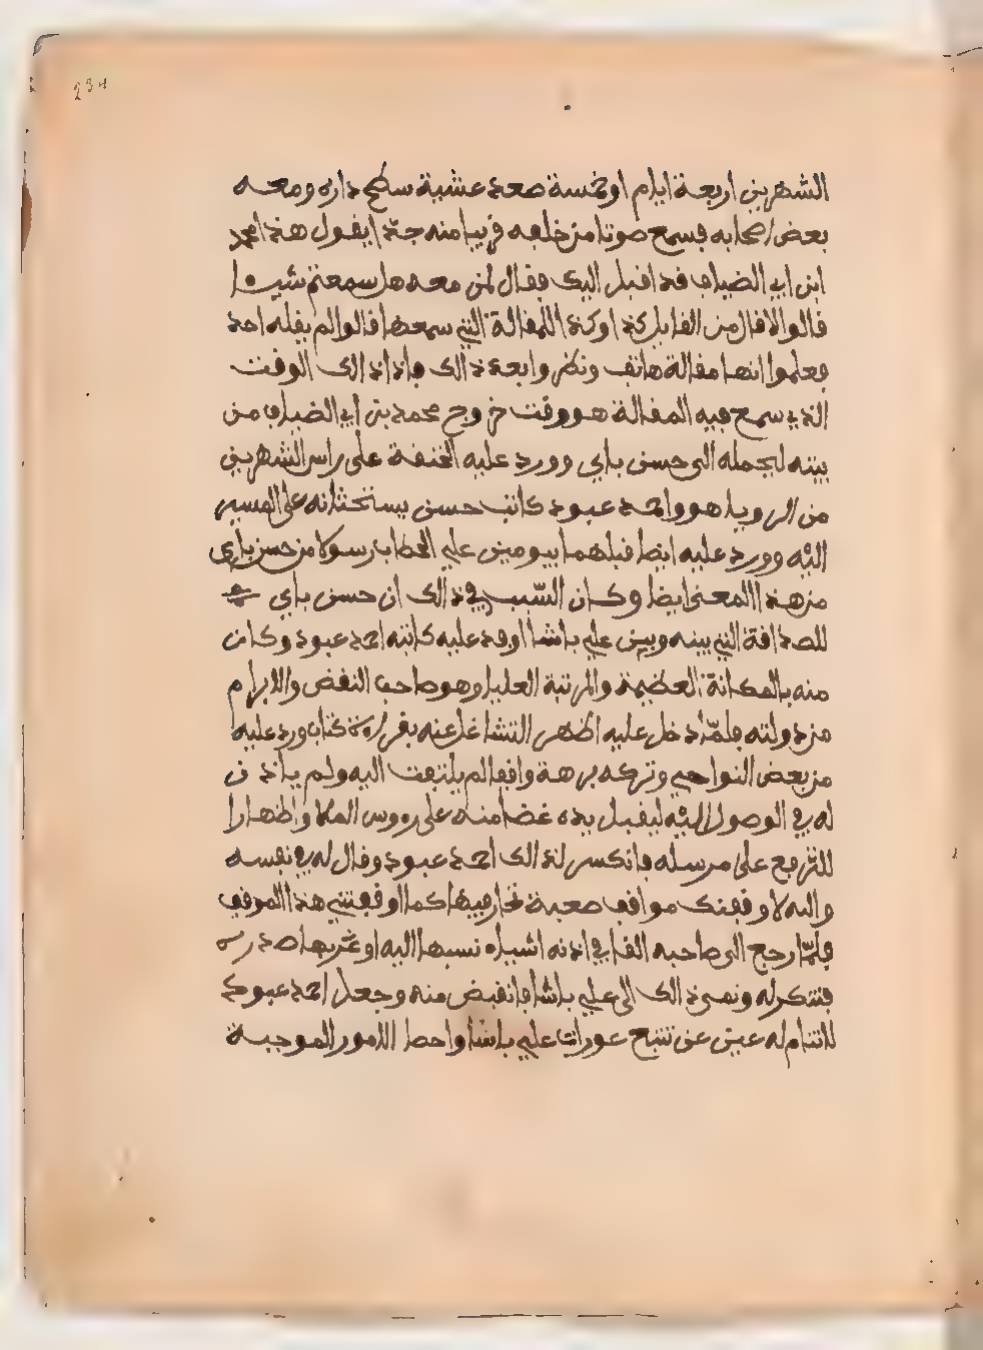 234
الشهرين اربعة ايام او خمسة صعد عشية سطح داره ومعه
بعض اصحابه فسمع صوتا من خلفه قريبا منه جدا يقول هذا محمد
ابن ابي الضياف قد اقبل اليك فقال لمن معه هل سمعتم شيئا
قالوا لا قال من القايل كذا وكذا للمقالة التي سمعها قالوا لم يقله احد
فعلموا انها مقالة هاتف ونظروا بعد ذالك فاذا ذالك الوقت
الذي سمع فيه المقالة هو وقت خروج محمد بن ابي الضياف من
بيته ليحمله الى حسن باي وورد عليه الخنفة على راس الشهرين
من الرويا هو واحمد عبود كاتب حسن يستحثانه على المسير
اليه وورد عليه ايضا قبلهما بيومين علي الحطاب رسولا من حسن باي
من هذا المعنى ايضا وكان السبب في ذالك ان حسن باي
للصداقة التي بينه وبين علي باشا اوفد عليه كاتبه احمد عبود وكان
منه بالمكانة العظيمة والمرتبة العليا وهو صاحب النقض والابرام
من دولته فلما دخل عليه اظهر التشاغل عنه بقراءة كتاب ورد عليه
من بعض النواحي وتركه برهة واقفا لم يلتفت اليه ولم ياذن
له في الوصول اليه ليقبل يده غضا منه على روس الملا واظهارا
للترفع على مرسله فانكسر لذالك احمد عبود وقال له في نفسه
والله لاوقفنك مواقف صعبة تحار فيها كما اوقفتني هذا الموقف
فلما رجع الى صاحبه القا في اذنه اشياء نسبها اليه اوغر بها صدره
فتنكر له ونمي ذالك الى علي باشا فانقبض منه وجعل احمد عبود
لا تنام له عين عن تتبع عورات علي باشا واحصا الامور الموجبة